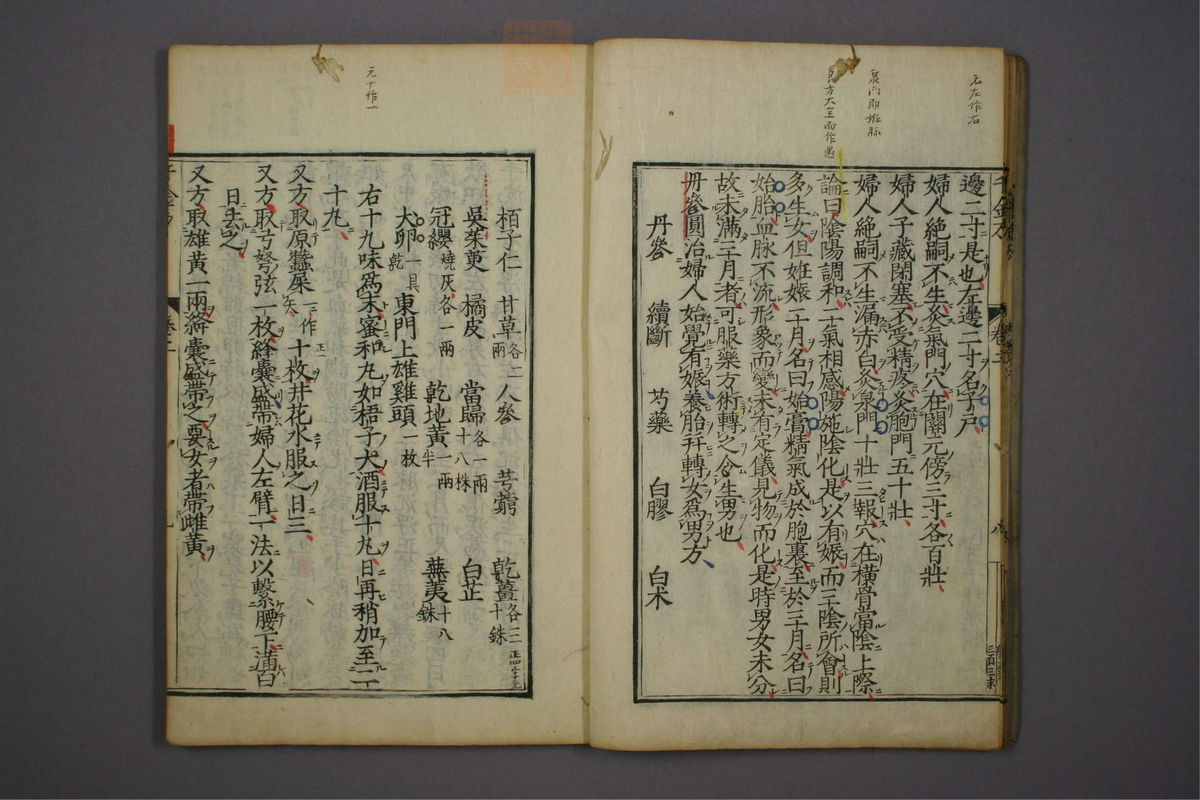 元左作右
泉門即姙脉
良方大全而作遇
邊二寸是也左邊二寸名子戶
婦人絕嗣不生灸氣門穴在關元傍三寸各百壯
婦人子藏閉塞不受精疼灸胞門五十壯
婦人絕嗣不生漏赤白灸泉門十壯三報穴在橫骨當陰上際
論曰陰陽調和二氣相感陽施陰化是以有娠而三陰所會則
多生女但姙娠二月名曰始膏精氣成於胞裏至於三月名曰
始胎血脉不流形象而變未有定儀見物而化是時男女未分
故未滿三月者可服藥方術轉之令生男也
丹參圓治婦人始覺有娠養胎并轉女爲男方
丹參 續斷 芍藥 白膠 白朮
元十作一
栢子仁 甘草各二兩 人參 芎藭 乾薑各三十銖
吳茱萸 橘皮 當歸各一兩十八株 白芷
冠纓燒灰各一兩 乾地黃一兩半 蕪荑十八銖
犬卵一具乾 東門上雄雞頭一枚
右十九味爲末蜜和丸如梧子大酒服十丸日再稍加至二
十丸
又方取原蠶屎一作矢十枚井花水服之日三
又方取弓弩弦一枚絳囊盛帶婦人左臂一法以繫腰下滿百
日去之
又方取雄黃一兩絳囊盛帶之要女者帶雌黃